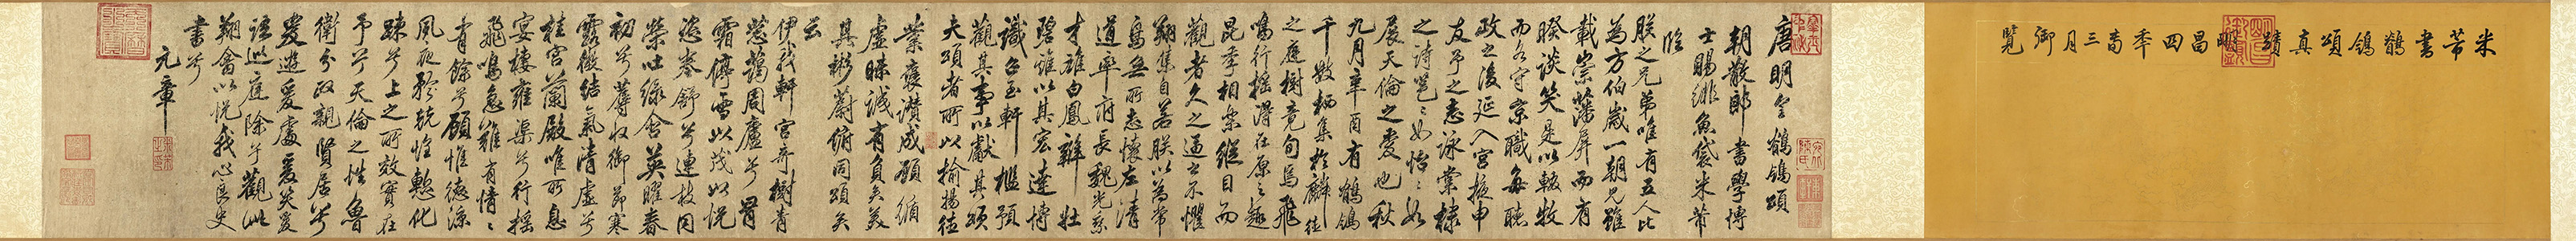 米芾書鶺鴒頌真蹟 明昌四年三月御覽
唐明皇鶺鴒頌
朝散郎書學博
士賜緋魚袋米芾
臨
朕之兄弟唯有五人比
為方伯歲一朝見雖
載崇藩屏而有
睽談笑是以輟牧
而各守京職每聽
政之後延入宮掖申
友于之志詠棠棣
之詩邕々如怡々如
展天倫之愛也秋
九月辛酉有鶺鴒
千數栖集於麟德
之庭樹竟旬焉飛
鳴行搖得在原之趣
昆季相樂縱目而
觀者久之逼之不懼
翔集自若朕以為常
鳥無所志懷左清
道率府長魏光乘
才雄白鳳辯壯
碧雞以其宏達博
識召至軒檻預
觀其事以獻其頌
夫頌者所以揄揚德
業褒讚成顧循
虛昧誠有負矣美
其彬蔚俯同頌矣
云
伊我軒宮奇樹青
蔥藹周廬兮冒
霜停雪以茂以悅
恣卷舒兮連枝同
榮吐綠含英曜春
初兮蓐收御節寒
露微結氣清虛兮
桂宮蘭殿唯所息
宴棲雍渠兮行搖
飛鳴急難有情々
有餘兮顧惟德涼
夙夜兢兢惟慙化
疎兮上之所效實在
予兮天倫之性魯
衛分政親賢居兮
爰遊爰處爰笑爰
語巡庭除兮觀此
翔禽以悅我心良史
書兮
元章